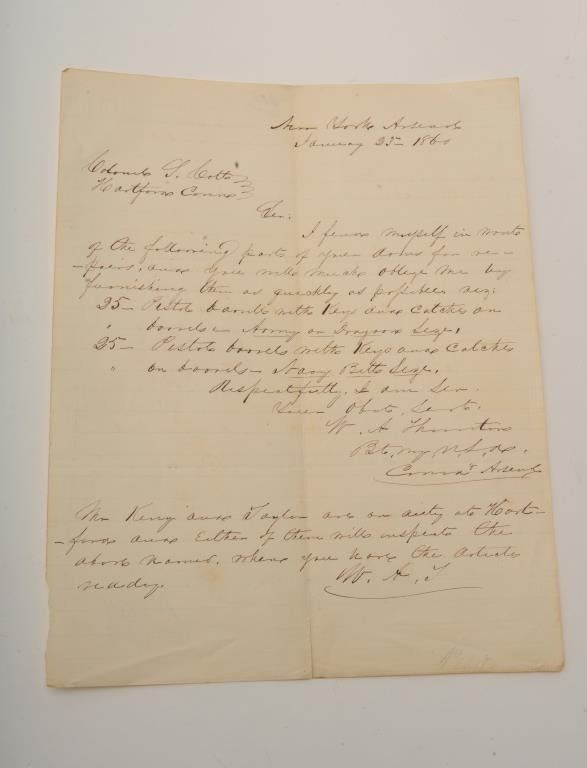 New York Arsenal
January 25th 1860
Colonel S. Colt
Hartford Conn
Sir:
I find myself in want
of the following parts of your arms for re-
-pairs, and you will much oblige me by
furnishing them as quickly as possible viz:
25 - Pistol barrels with Keys and catches on
" barrels - Army or Dragoon Size,
25 - Pistol barrels with Keys and Catches
" on barrels - Navy Belt Size,
Respectfully, I am Sir
Your Obt. Servt.
W. A. Thornton
Bt. Maj U.S.
Comdg Arsenal
Mr King and Taylor are on duty at Hart-
-ford and Either of them will inspect the
above named, when you have the articles
ready.
W. A. T